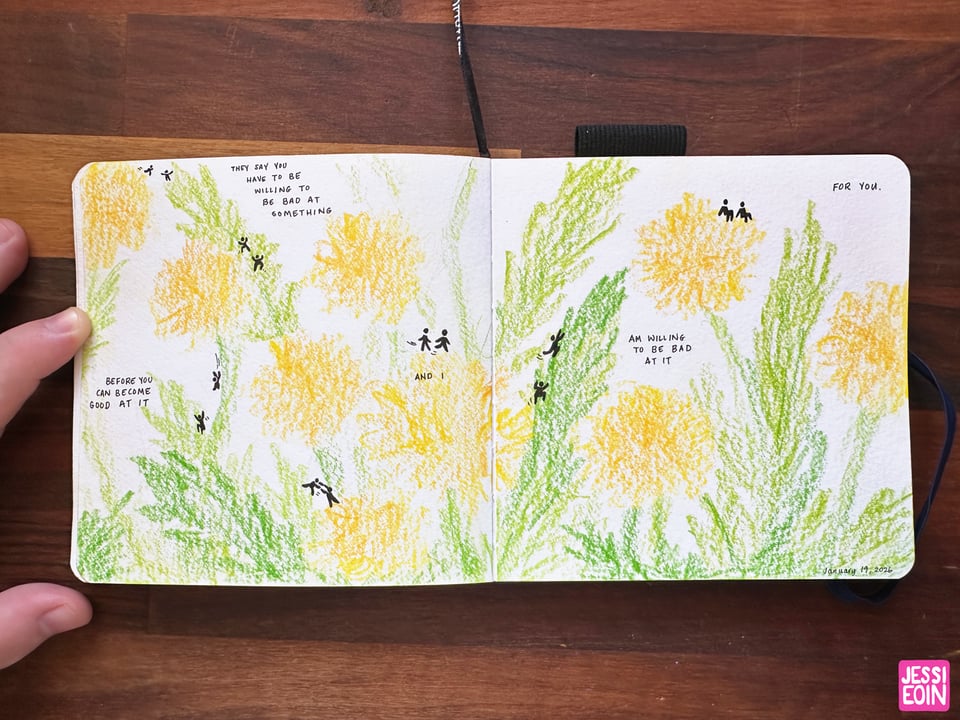 THEY SAY YOU
HAVE TO BE
WILLING TO
BE BAD AT
SOMETHING
BEFORE YOU
CAN BECOME
GOOD AT IT
AND I
AM WILLING
TO BE BAD
AT IT
FOR YOU.
January 19, 2026
JESSI
EOIN